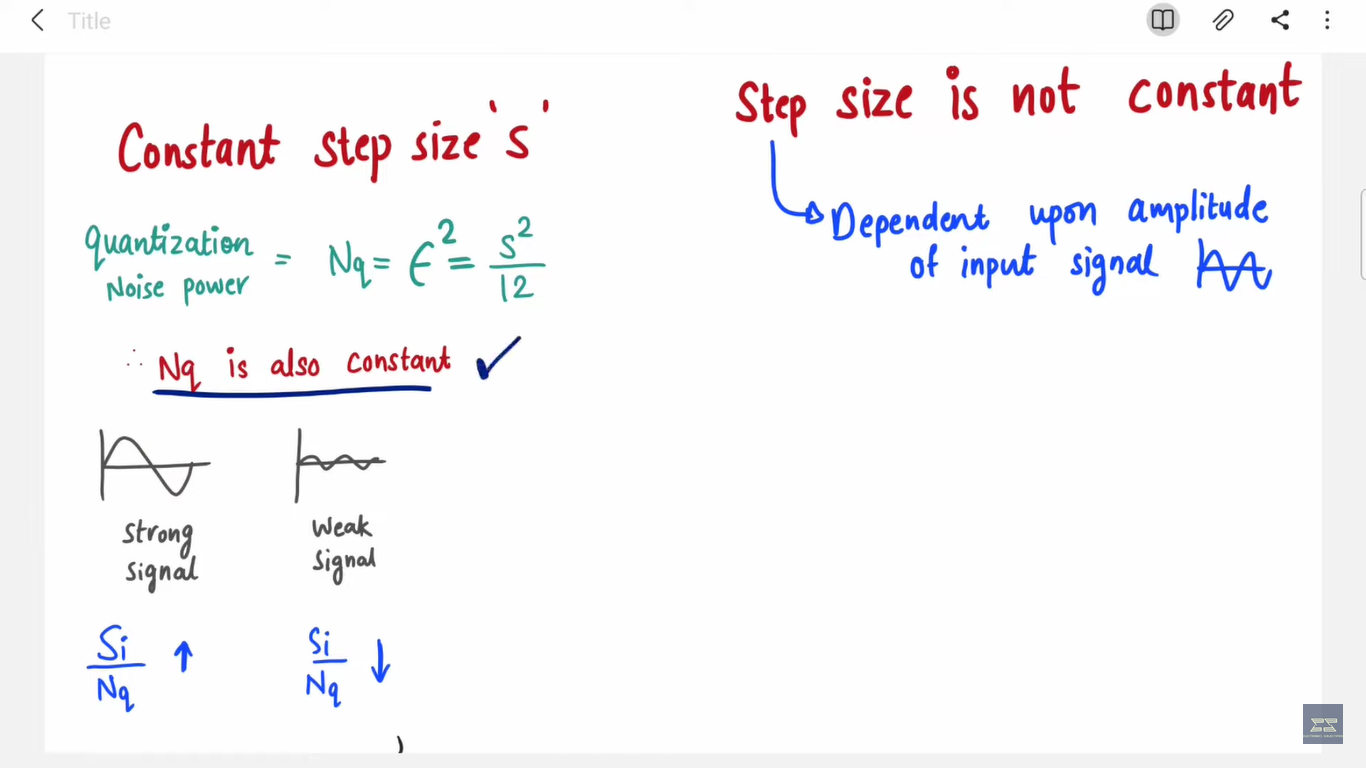 Title
Constant step size 's'
Quantization Noise power = Nq = ϵ² = s²/12
∴ Nq is also constant ✓
Strong signal
Weak signal
Si/Nq ↑
Si/Nq ↓
Step size is not constant
Dependent upon amplitude
of input signal